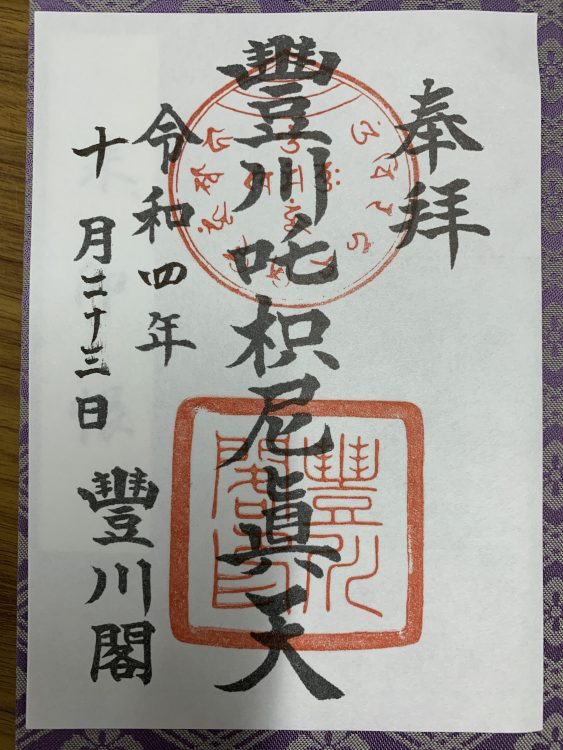 奉拝
豐川吒枳尼眞天
令和四年
十月二十三日
豐川閣